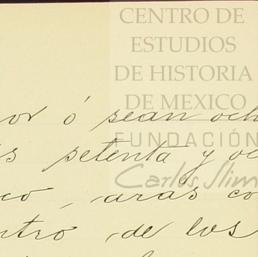 CENTRO DE
ESTUDIOS
DE HISTORIA
DE MEXICO
FUNDACIÓN
Carlos Slim
or ó sean och
s setenta y oc
co, aras co
ntro, de los